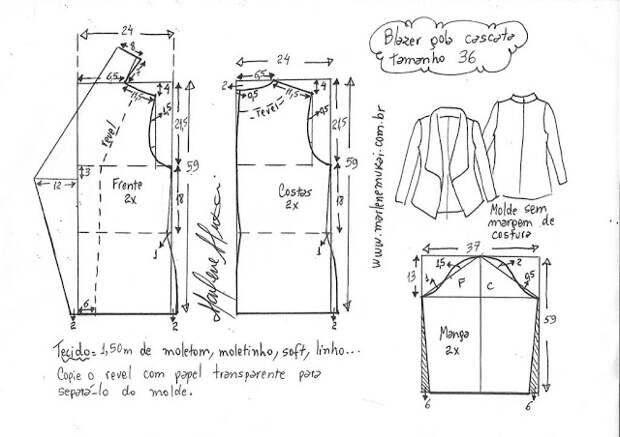 Blazer gola cascata
tamanho 36
24
8
7
6,5
11,5
4
1,5
21,5
revel
59
3
12
Frente
2x
18
1
6
2
2
24
6,5
2
0,5
11,5
4
revel
0,5
21,5
59
Costas
2x
18
1
2
Marlene Mukai
www.marlenemukai.com.br
Molde sem
margem de
costura
37
13
1,5
2
1
F
C
0,5
59
Manga
2x
6
6
Tecido= 1,50m de moletom, moletinho, soft, linho...
Copie o revel com papel transparente para
separá-lo do molde.